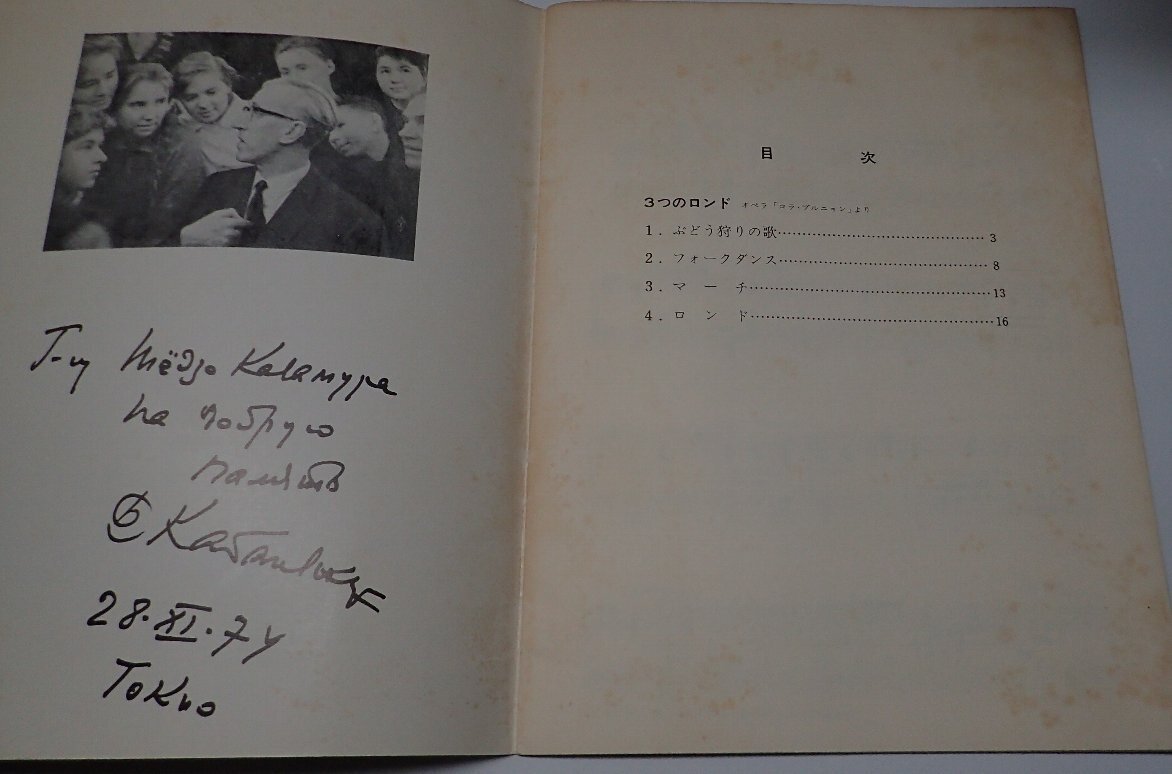 Г-ну Кавамура
на добрую
память
Д Кабалевский
28.XI.74
Токио
目 次
3つのロンド オペラ「コラ・ブルニョン」より
1. ぶどう狩りの歌……………………………………3
2. フォークダンス……………………………………8
3. マ ー チ……………………………………13
4. ロ ン ド……………………………………16